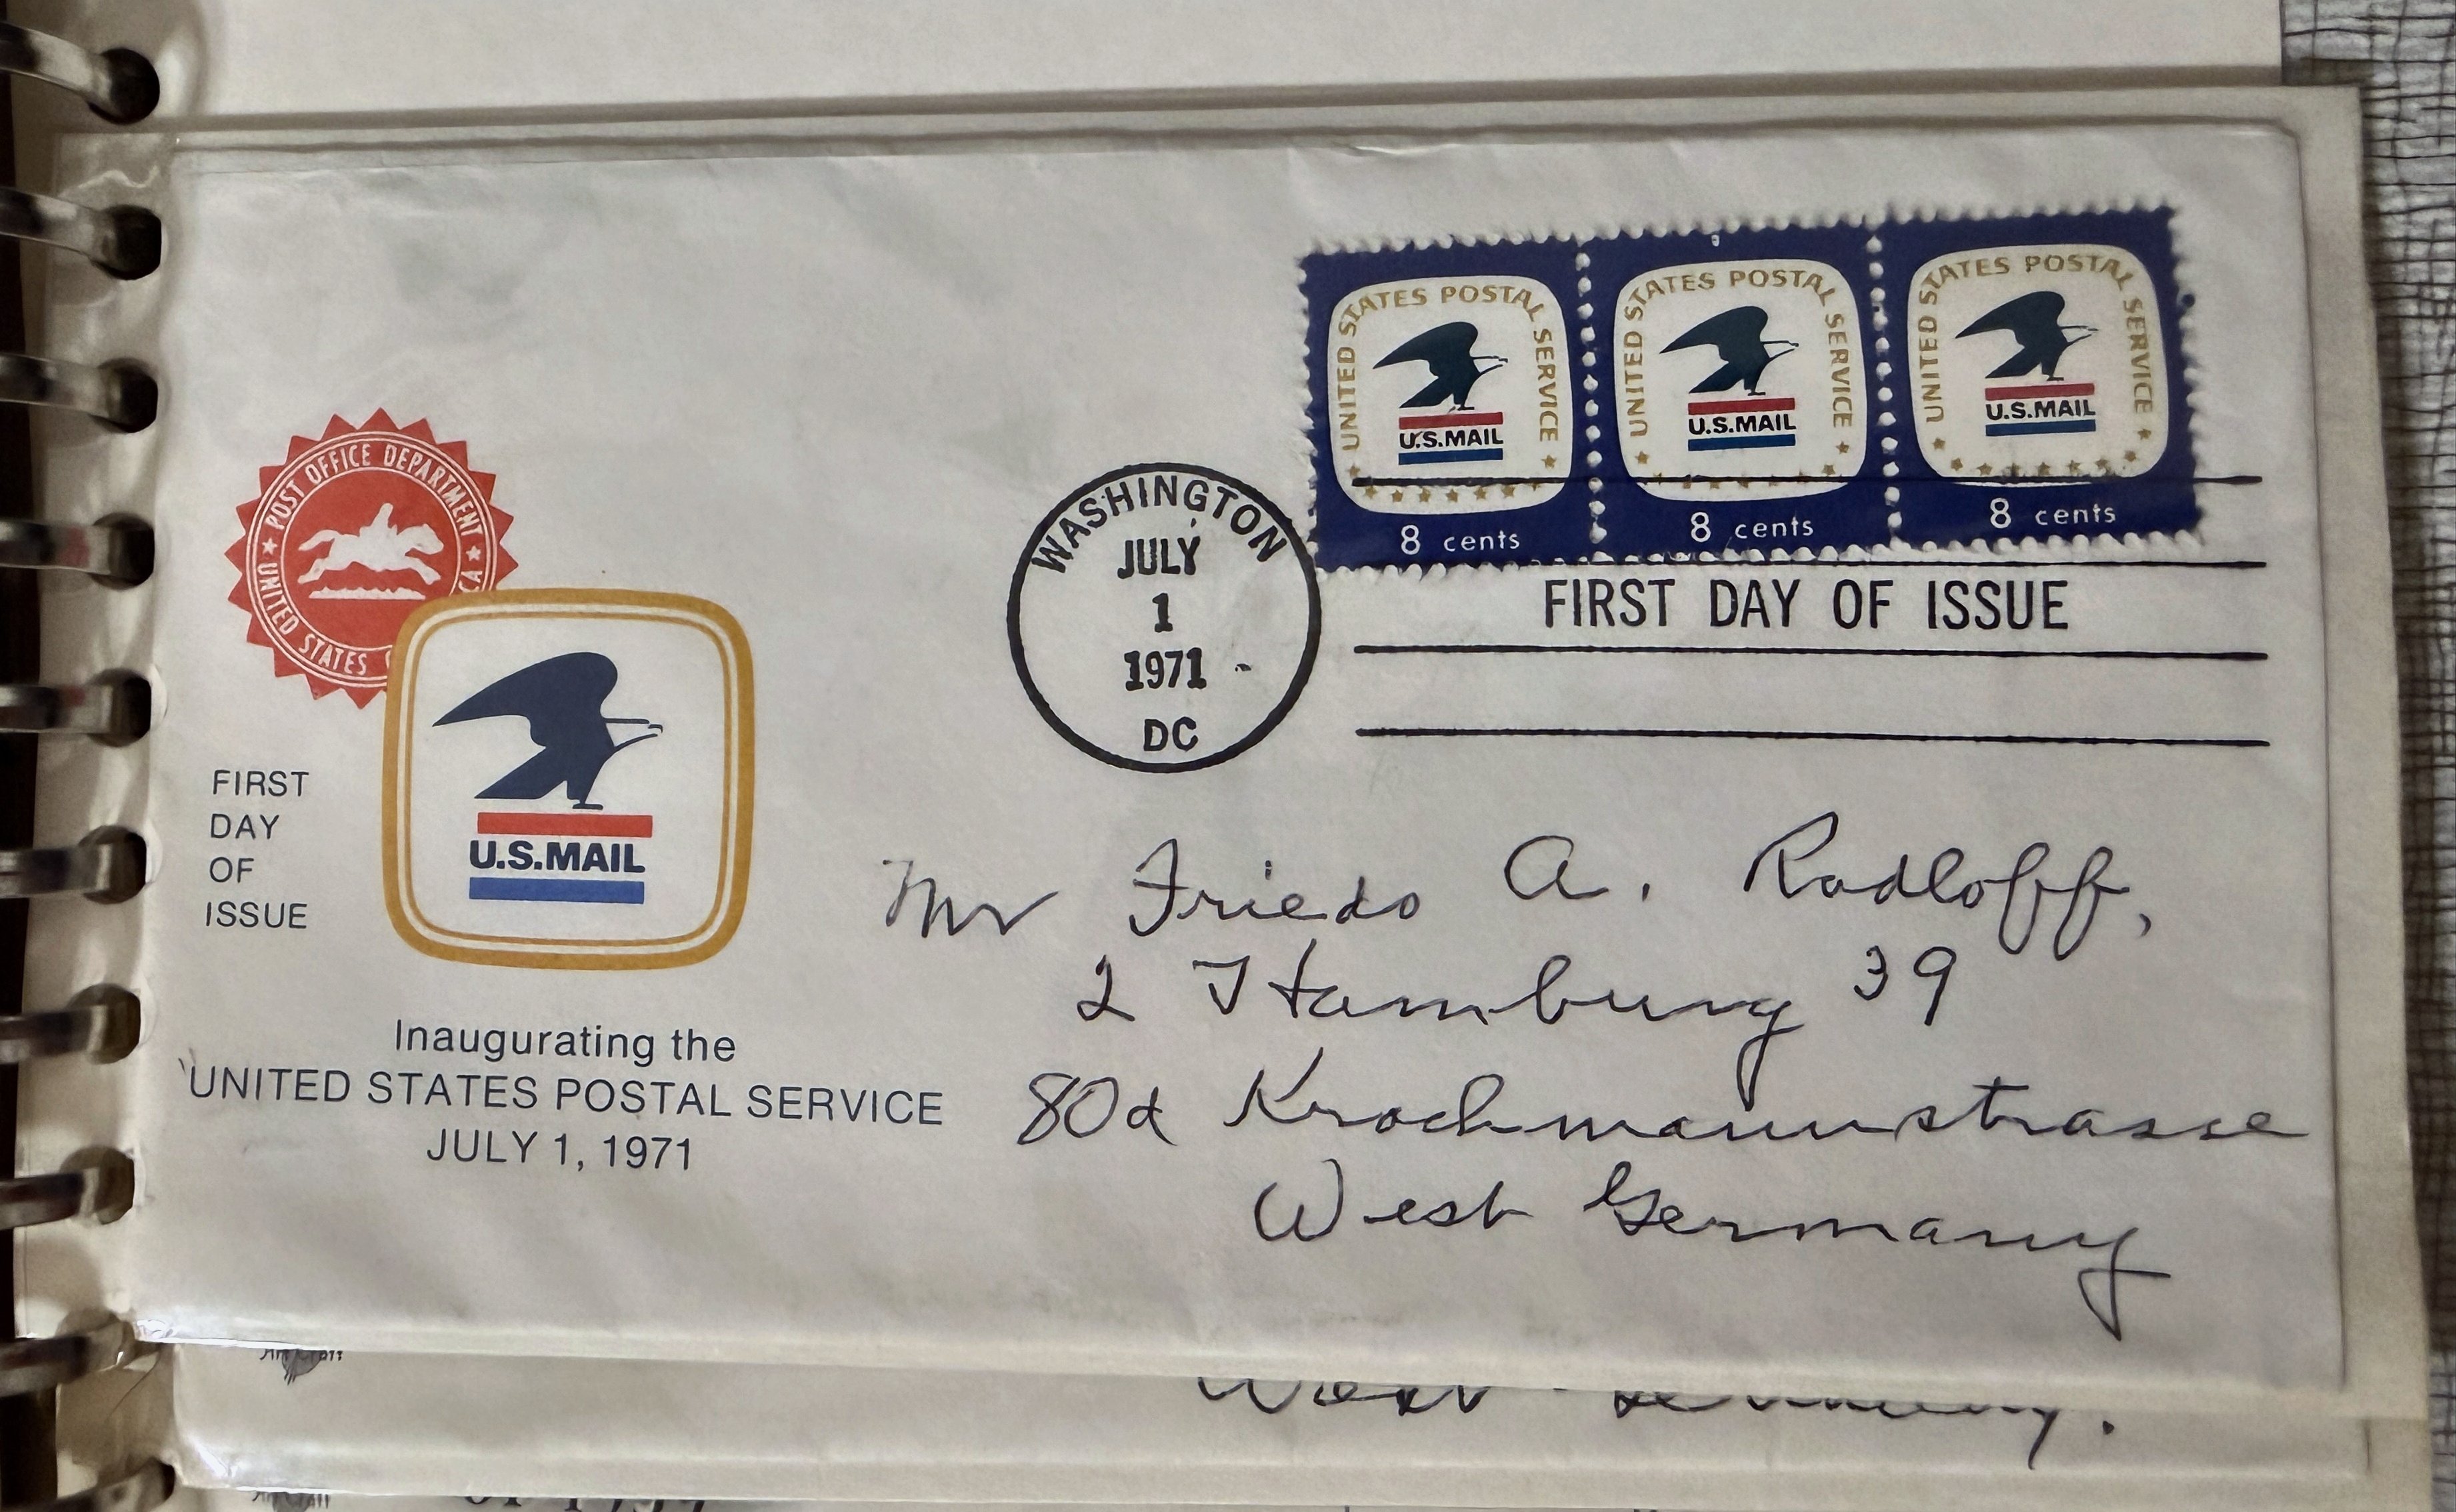 UNITED STATES POSTAL SERVICE
U.S.MAIL
8 cents
UNITED STATES POSTAL SERVICE
U.S.MAIL
8 cents
UNITED STATES POSTAL SERVICE
U.S.MAIL
8 cents
WASHINGTON
JULY
1
1971
DC
FIRST DAY OF ISSUE
POST OFFICE DEPARTMENT
UNITED STATES
FIRST
DAY
OF
ISSUE
U.S.MAIL
Inaugurating the
UNITED STATES POSTAL SERVICE
JULY 1, 1971
Mr Friedo A. Radloff,
2 Hamburg 39
80a Krochmannstrasse
West Germany
West Germany.